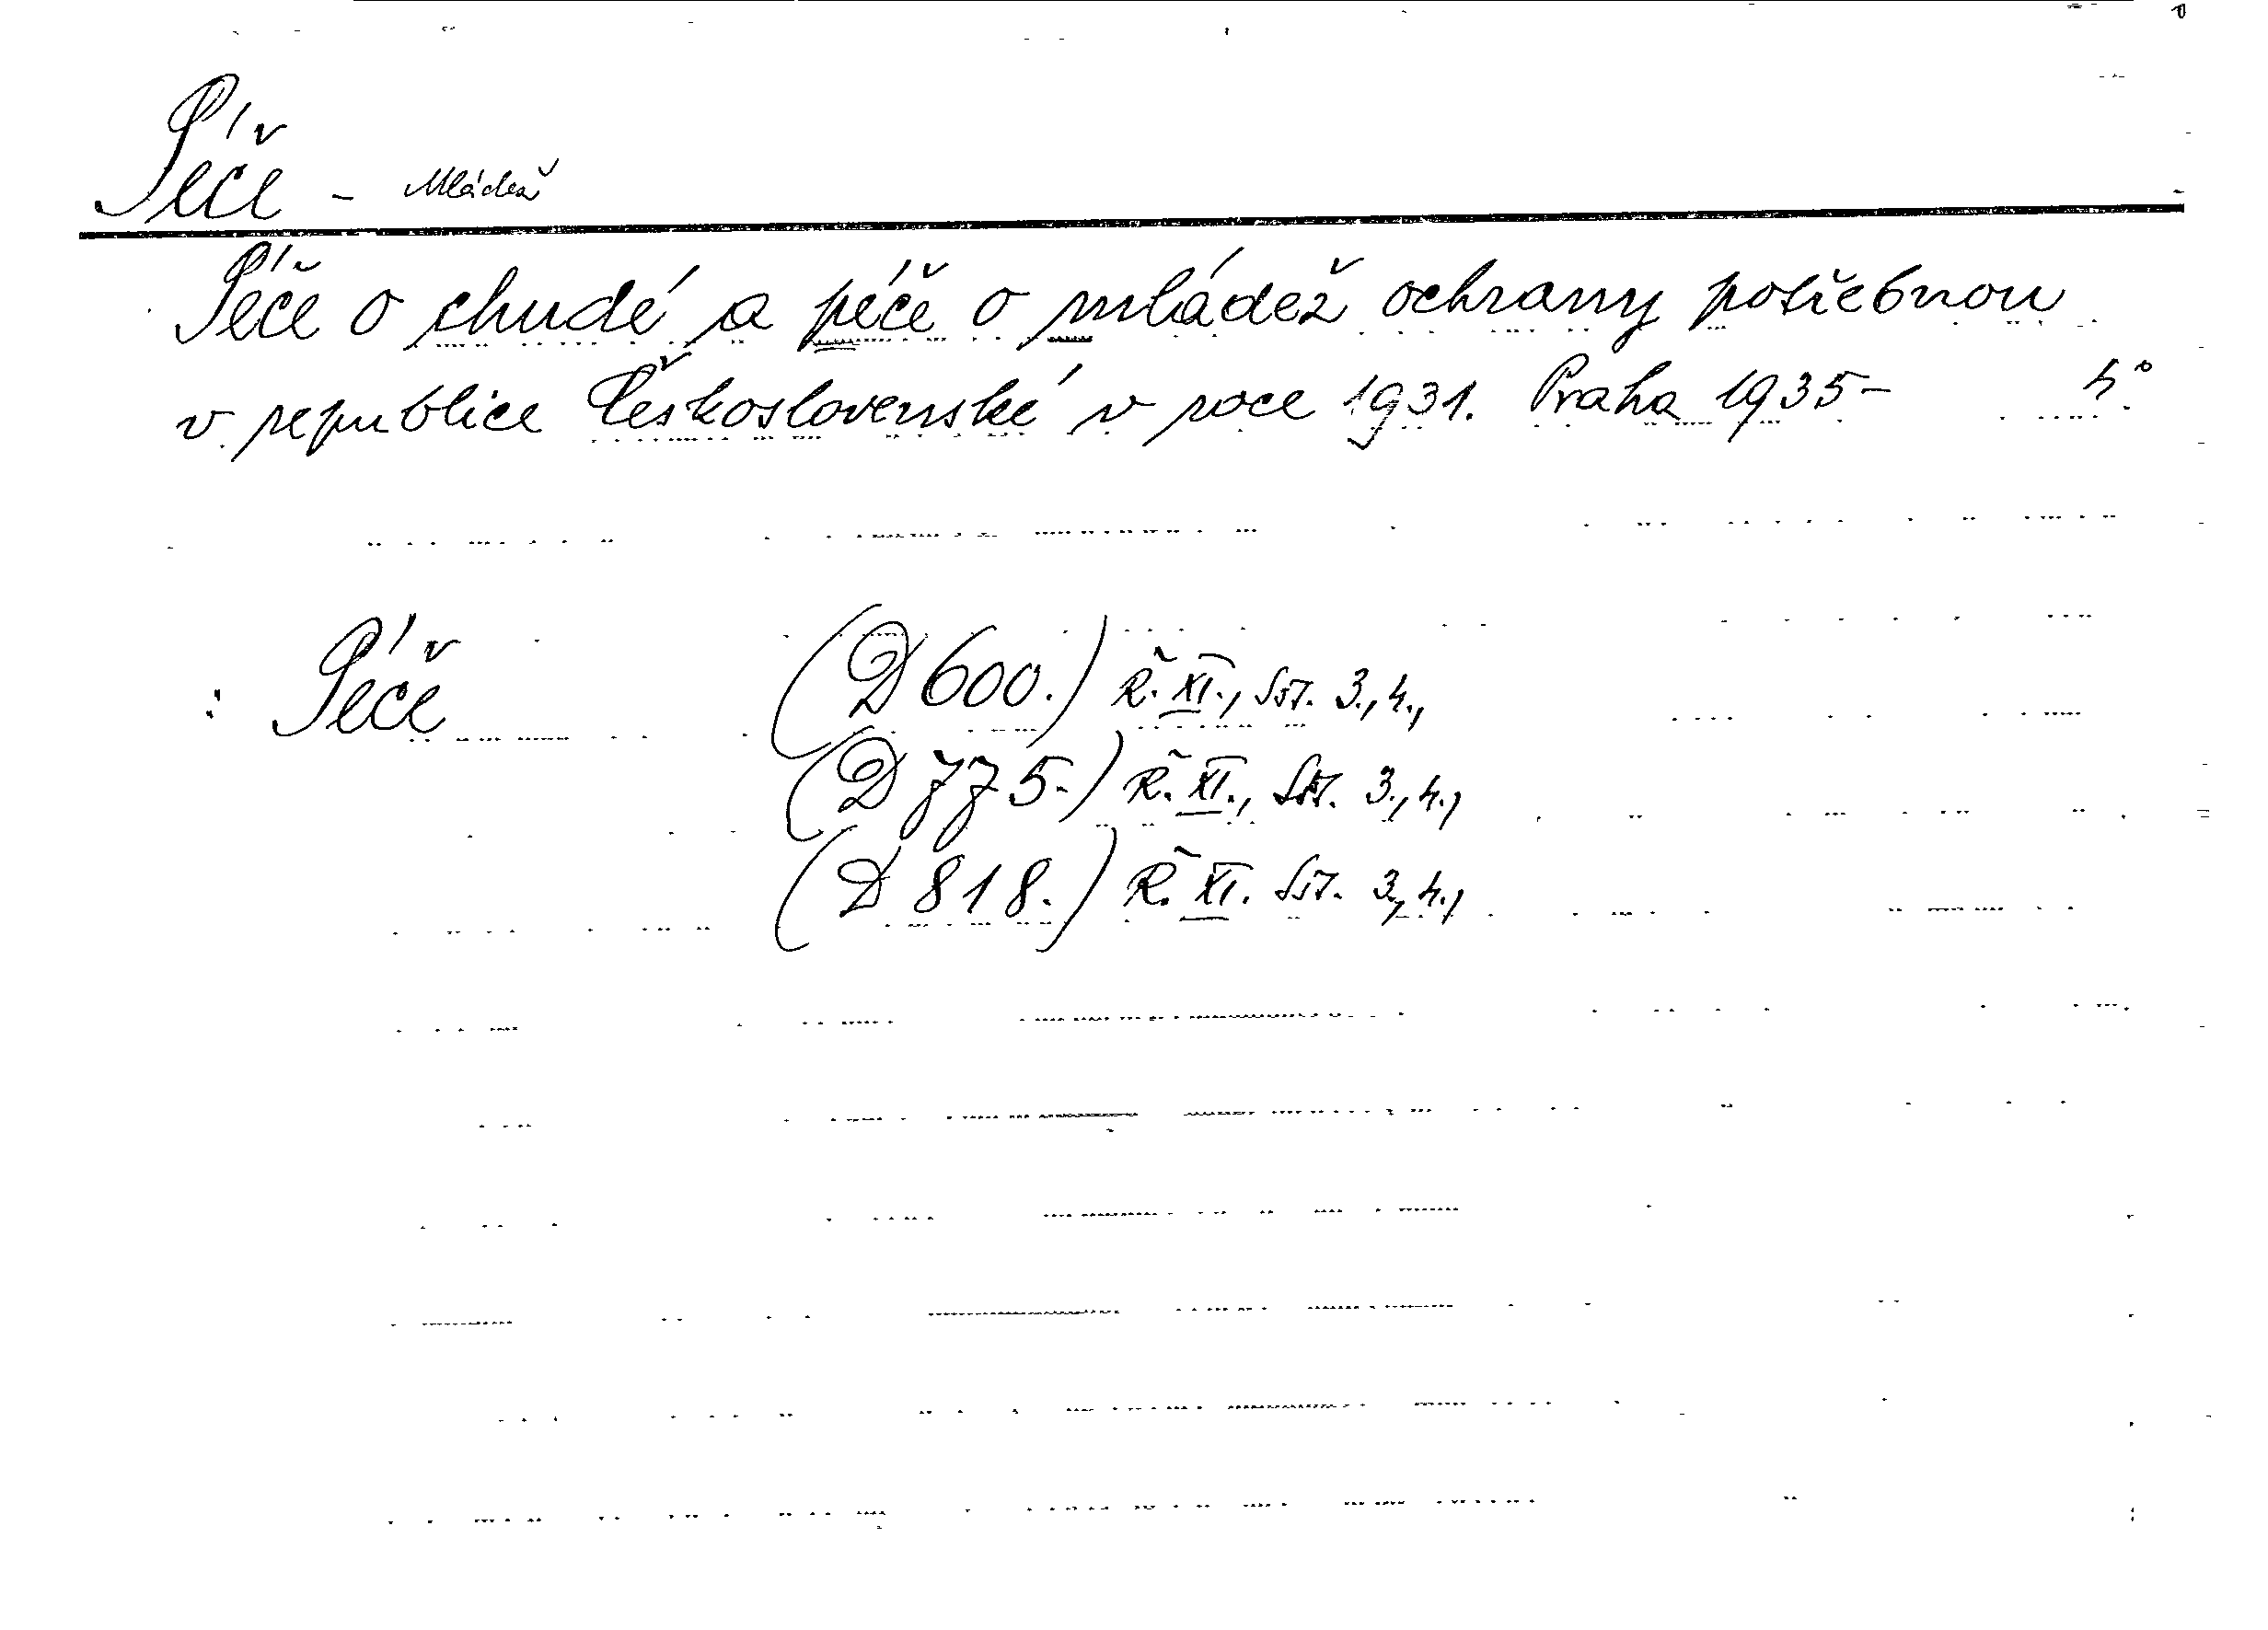 Péče - Mládež
Péče o chudé a péče o mládež ochrany potřebnou
v republice Československé v roce 1931. Praha 1935- 4°
: Péče (D 600.) Ř. XI., Sšt. 3., 4.,
(D 775.) Ř. XI., Sšt. 3., 4.,
(D 818.) Ř. XI. Sšt. 3., 4.,